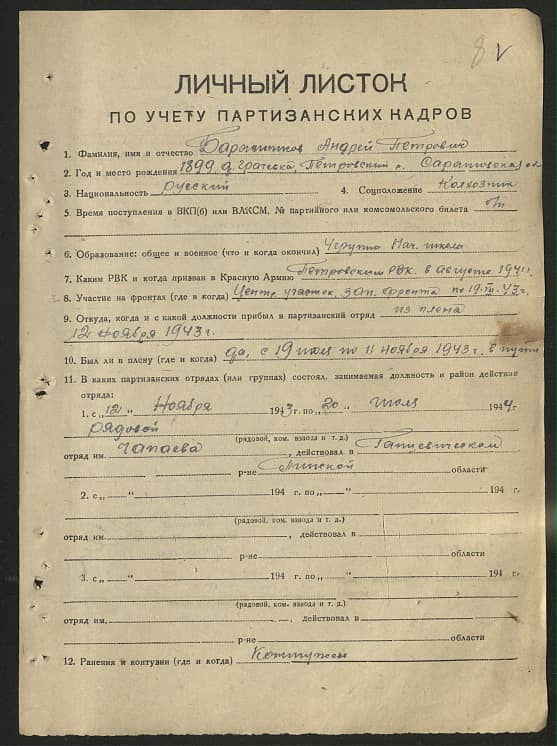 8 V
ЛИЧНЫЙ ЛИСТОК
ПО УЧЕТУ ПАРТИЗАНСКИХ КАДРОВ
1. Фамилия, имя и отчество Андрей Петрович
2. Год и место рождения 1899 д. Грачевка, Петровский р. Саратовская обл
3. Национальность русский 4. Соцположение Колхозник
5. Время поступления в ВКП(б) или ВЛКСМ, № партийного или комсомольского билета б/п
6. Образование: общее и военное (что и когда окончил) 4 группы Нач. школы
7. Каким РВК и когда призван в Красную Армию Петровским РВК в августе 1941
8. Участие на фронтах (где и когда) Центр. участок, зап. фронта по 19. 43 г.
9. Откуда, когда и с какой должности прибыл в партизанский отряд из плена
12 ноября 1943 г.
10. Был ли в плену (где и когда) да, с 19 июля по 11 ноября 1943 г. в пути
11. В каких партизанских отрядах (или группах) состоял, занимаемая должность и район действия
отряда:
1. с „12“ Ноября 1943 г. по „20“ июля 1944 г
рядовой
(рядовой, ком. взвода и т. д.)
отряд им. Чапаева, действовал в Ганцевическом
р-не Пинской области
2. с „ “ 194 г. по „ “ 194 г.
(рядовой, ком. взвода и т. д.)
отряд им. , действовал в
р-не области
3. с „ “ 194 г. по „ “ 194 г.
(рядовой, ком. взвода и т. д.)
отряд им. , действовал в
р-не области
12. Ранения и контузии (где и когда)